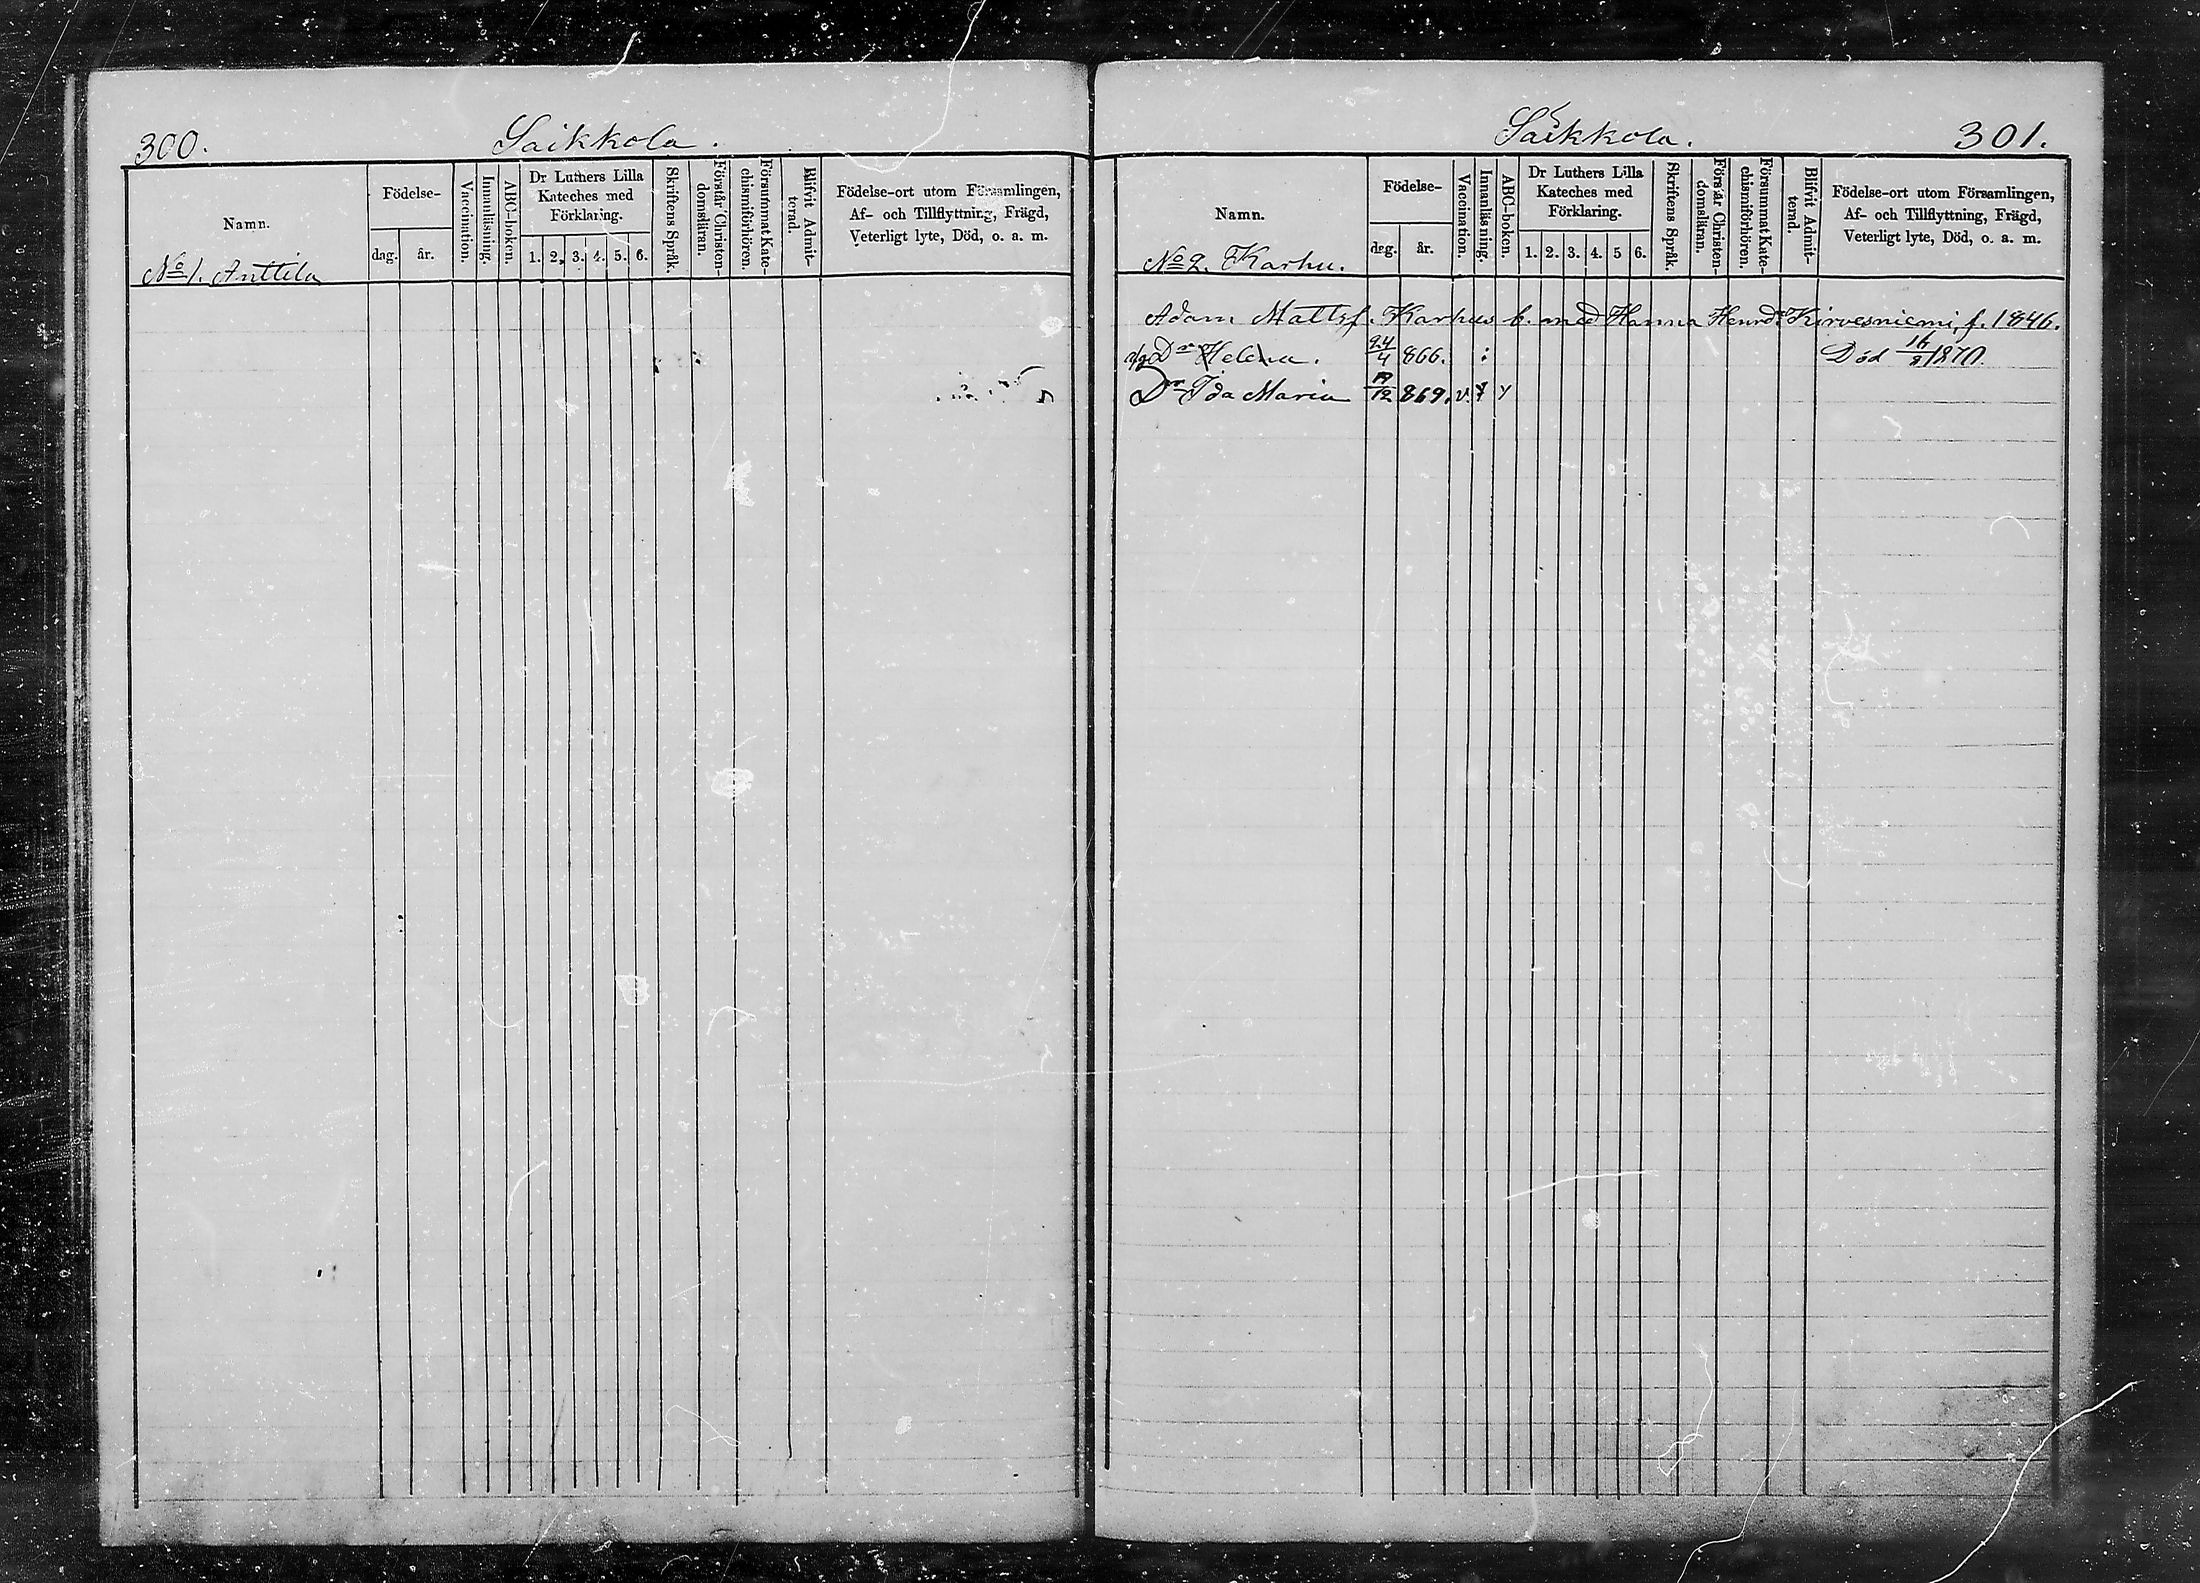 300.
Saikkola.
Namn.
Födelse-
dag. år.
Vaccination.
Innanläsning.
ABC-boken.
Dr Luthers Lilla
Kateches med
Förklaring.
1. 2. 3. 4. 5. 6.
Skriftens Språk.
Förstår Christen-
domsläran.
Försummat Kate-
chismiförhören.
Blifvit Admit-
terad.
Födelse-ort utom Församlingen,
Af- och Tillflyttning, Frägd,
Veterligt lyte, Död, o. a. m.
No 1. Anttila
Saikkola.
301.
Namn.
Födelse-
dag. år.
Vaccination.
Innanläsning.
ABC-boken.
Dr Luthers Lilla
Kateches med
Förklaring.
1. 2. 3. 4. 5 6.
Skriftens Språk.
Förstår Christen-
domsläran.
Försummat Kate-
chismiförhören.
Blifvit Admit-
terad.
Födelse-ort utom Församlingen,
Af- och Tillflyttning, Frägd,
Veterligt lyte, Död, o. a. m.
No 2. Karhu.
Adam Mattsf. Karhus b. med Hanna Henrdr Kirvesniemi, f. 1846.
Dr Helena. 24/4 866. Död 16/8 1870.
Dr Ida Maria /12 869. v.